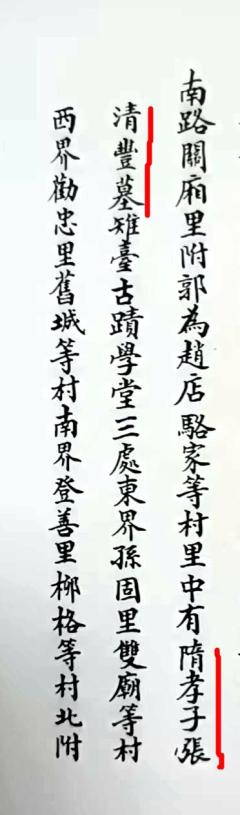 南路關廂里附郭為趙店駱家等村里中有隋孝子張
清豐墓雉臺古蹟學堂三處東界孫固里雙廟等村
西界勸忠里舊城等村南界登善里柳格等村北附